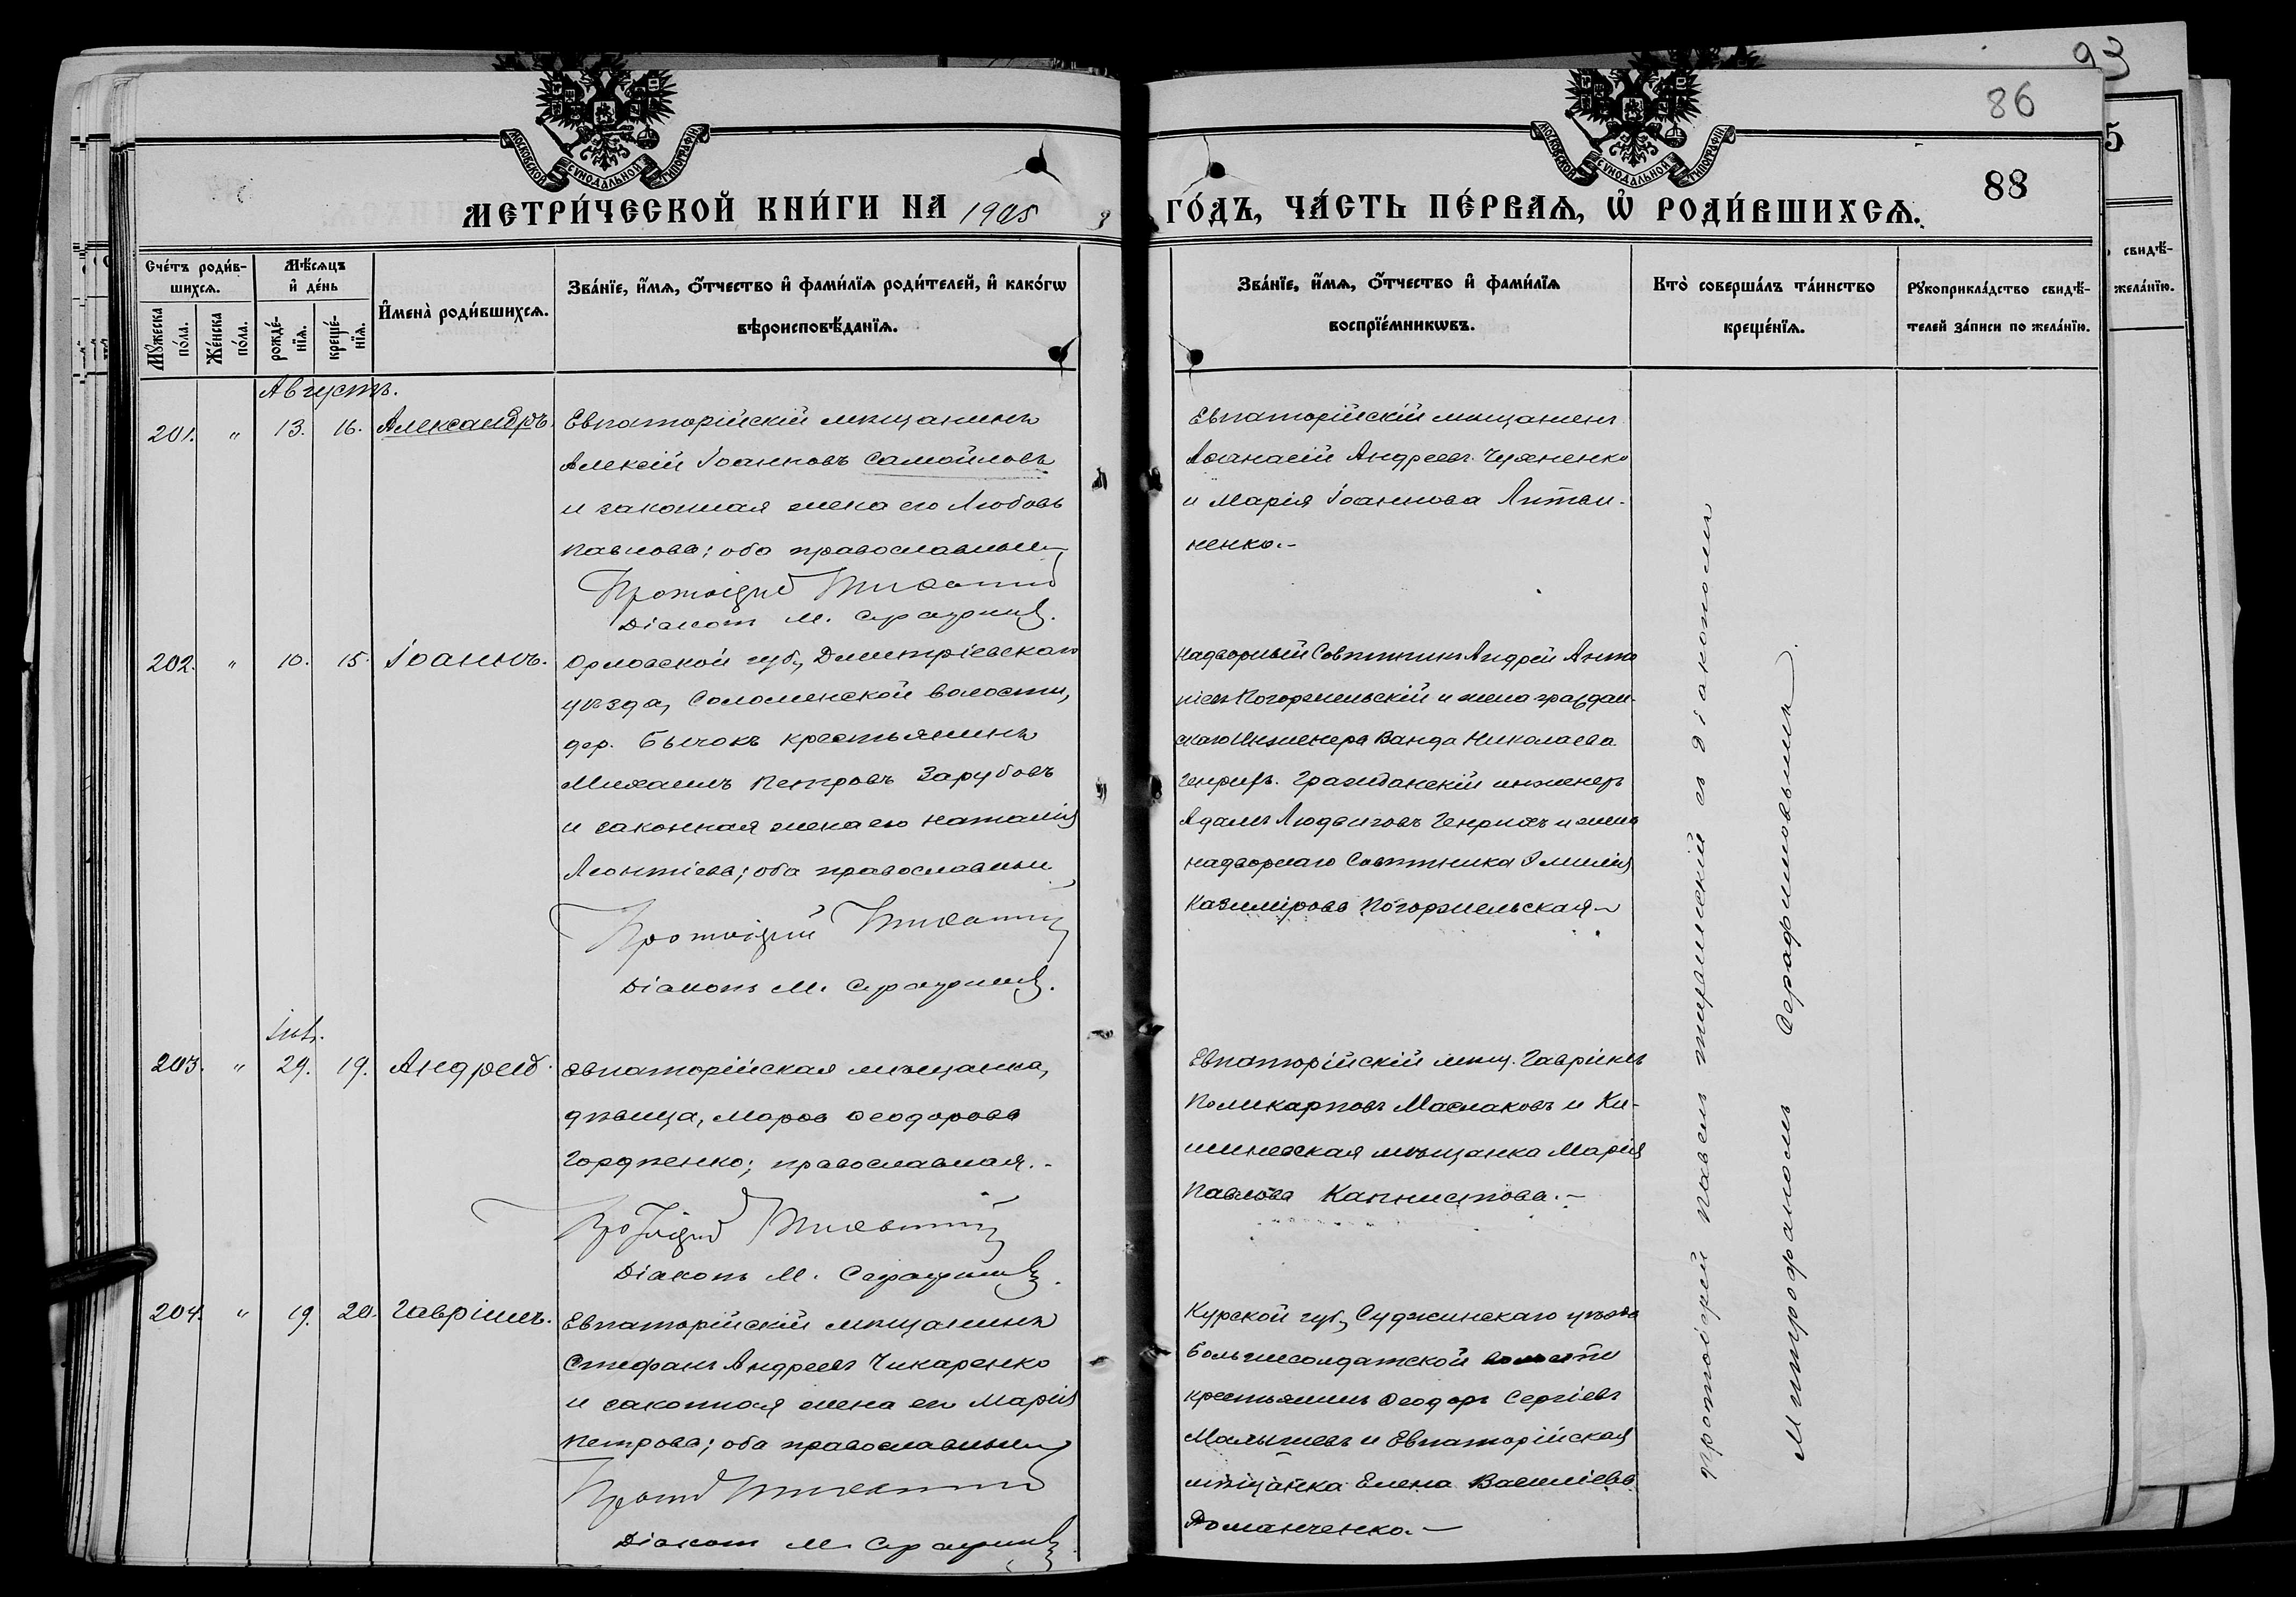 93
86
88
МОСКОВСКОЙ СѴНОДАЛЬНОЙ ТИПОГРАФІИ
МОСКОВСКОЙ СѴНОДАЛЬНОЙ ТИПОГРАФІИ
МЕТРИ́ЧЕСКОЙ КНИ́ГИ НА 1905
ГО́ДЪ, ЧА́СТЬ ПЕ́РВАЯ, Ѡ҆ РОДИ́ВШИХСЯ.
Сче́тъ роди́в-
шихся.
Му́жеска по́ла.
Же́нска по́ла.
Мѣ́сяцъ и҆ де́нь
рожде́-нїя.
креще́-нїя.
И҆мена̀ роди́вшихся.
Зва́нїе, и҆́мя, ѻ҆́тчество и҆ фами́лїя роди́телей, и҆ како́гѡ
вѣроисповѣ́данїя.
Зва́нїе, и҆́мя, ѻ҆́тчество и҆ фами́лїя
воспрїе́мникѡвъ.
Кто̀ соверша́лъ та́инство
креще́нїя.
Рꙋкоприкла́дство свидѣ́-
телей за́писи по жела́нїю.
свидѣ́-
жела́нїю.
Августъ.
201. " 13. 16. Александръ.
Евпаторійскій мѣщанинъ
Алексій Іоанновъ Самойловъ
и законная жена его Любовь
Павлова; оба православные
Протоіерей
Діаконъ М. Серафимовъ.
Евпаторійскій мѣщанинъ
Аѳанасій Андреевъ
и Марія Іоаннова Литви-
ненко.-
202. " 10. 15. Іоаннъ.
Орловской губ., Дмитріевскаго
уѣзда, Соломенской волости,
дер. Бычокъ крестьянинъ
Михаилъ Петровъ Зарубовъ
и законная жена его Наталія
Леонтіева; оба православные
Протоіерей
Діаконъ М. Серафимовъ.
Надворный Совѣтникъ Андрей Анто
ніевъ Погоржельскій и жена граждан-
скаго Инженера Ванда Николаева
Генрихъ. Гражданскій инженеръ
Адамъ Людвиговъ Генрихъ и жена
надворнаго Совѣтника Эмилія
Казимірова Погоржельская
203. " 29. 19. Андрей.
Евпаторійская мѣщанка,
дѣвица, Мавра Ѳеодорова
Гордѣенко; православная.-
Протоіерей
Діаконъ М. Серафимовъ.
Евпаторійскій мѣщ. Гавріилъ
Поликарповъ Маслаковъ и Ки-
шиневская мѣщанка Марія
Павлова Капнистова.-
204. " 19. 20. Гавріилъ.
Евпаторійскій мѣщанинъ
Стефанъ Андреевъ Чикаренко
и законная жена его Марія
Петрова; оба православные
Діаконъ М. Серафимовъ
Курской губ., Суджинскаго уѣзда
Большесолдатской волости
крестьянинъ Ѳеодоръ Сергіевъ
Малышевъ и Евпаторійская
мѣщанка Елена Василіева
Романченко.-
Протоіерей Павелъ съ діакономъ
Митрофаномъ Серафимовымъ.